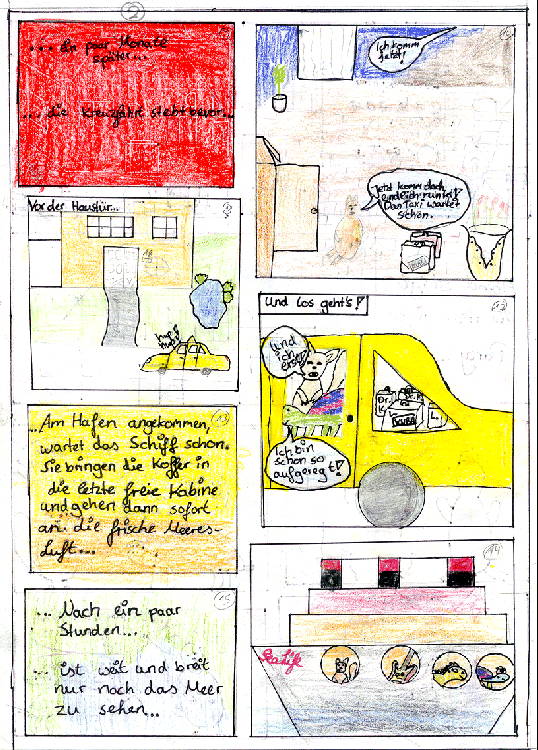 2
... Ein paar Monate
später...
... die Kreuzfahrt steht bevor...
Ich komm
jetzt!
Jetzt komm doch
endlich runter!
Das Taxi wartet
schon.
Vor der Haustür...
hup
hup!
Und los geht's!
Und
ich
erst!
Ich bin
schon so
aufgeregt!
13
...Am Hafen angekommen,
wartet das Schiff schon.
Sie bringen die Koffer in
die letzte freie Kabine
und gehen dann sofort
an die frische Meeres-
Luft...
14
Sealife
15
... Nach ein paar
Stunden...
... ist weit und breit
nur noch das Meer
zu sehen...